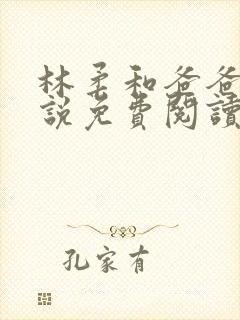 林柔和爸爸
說免費閱讀
孔家有